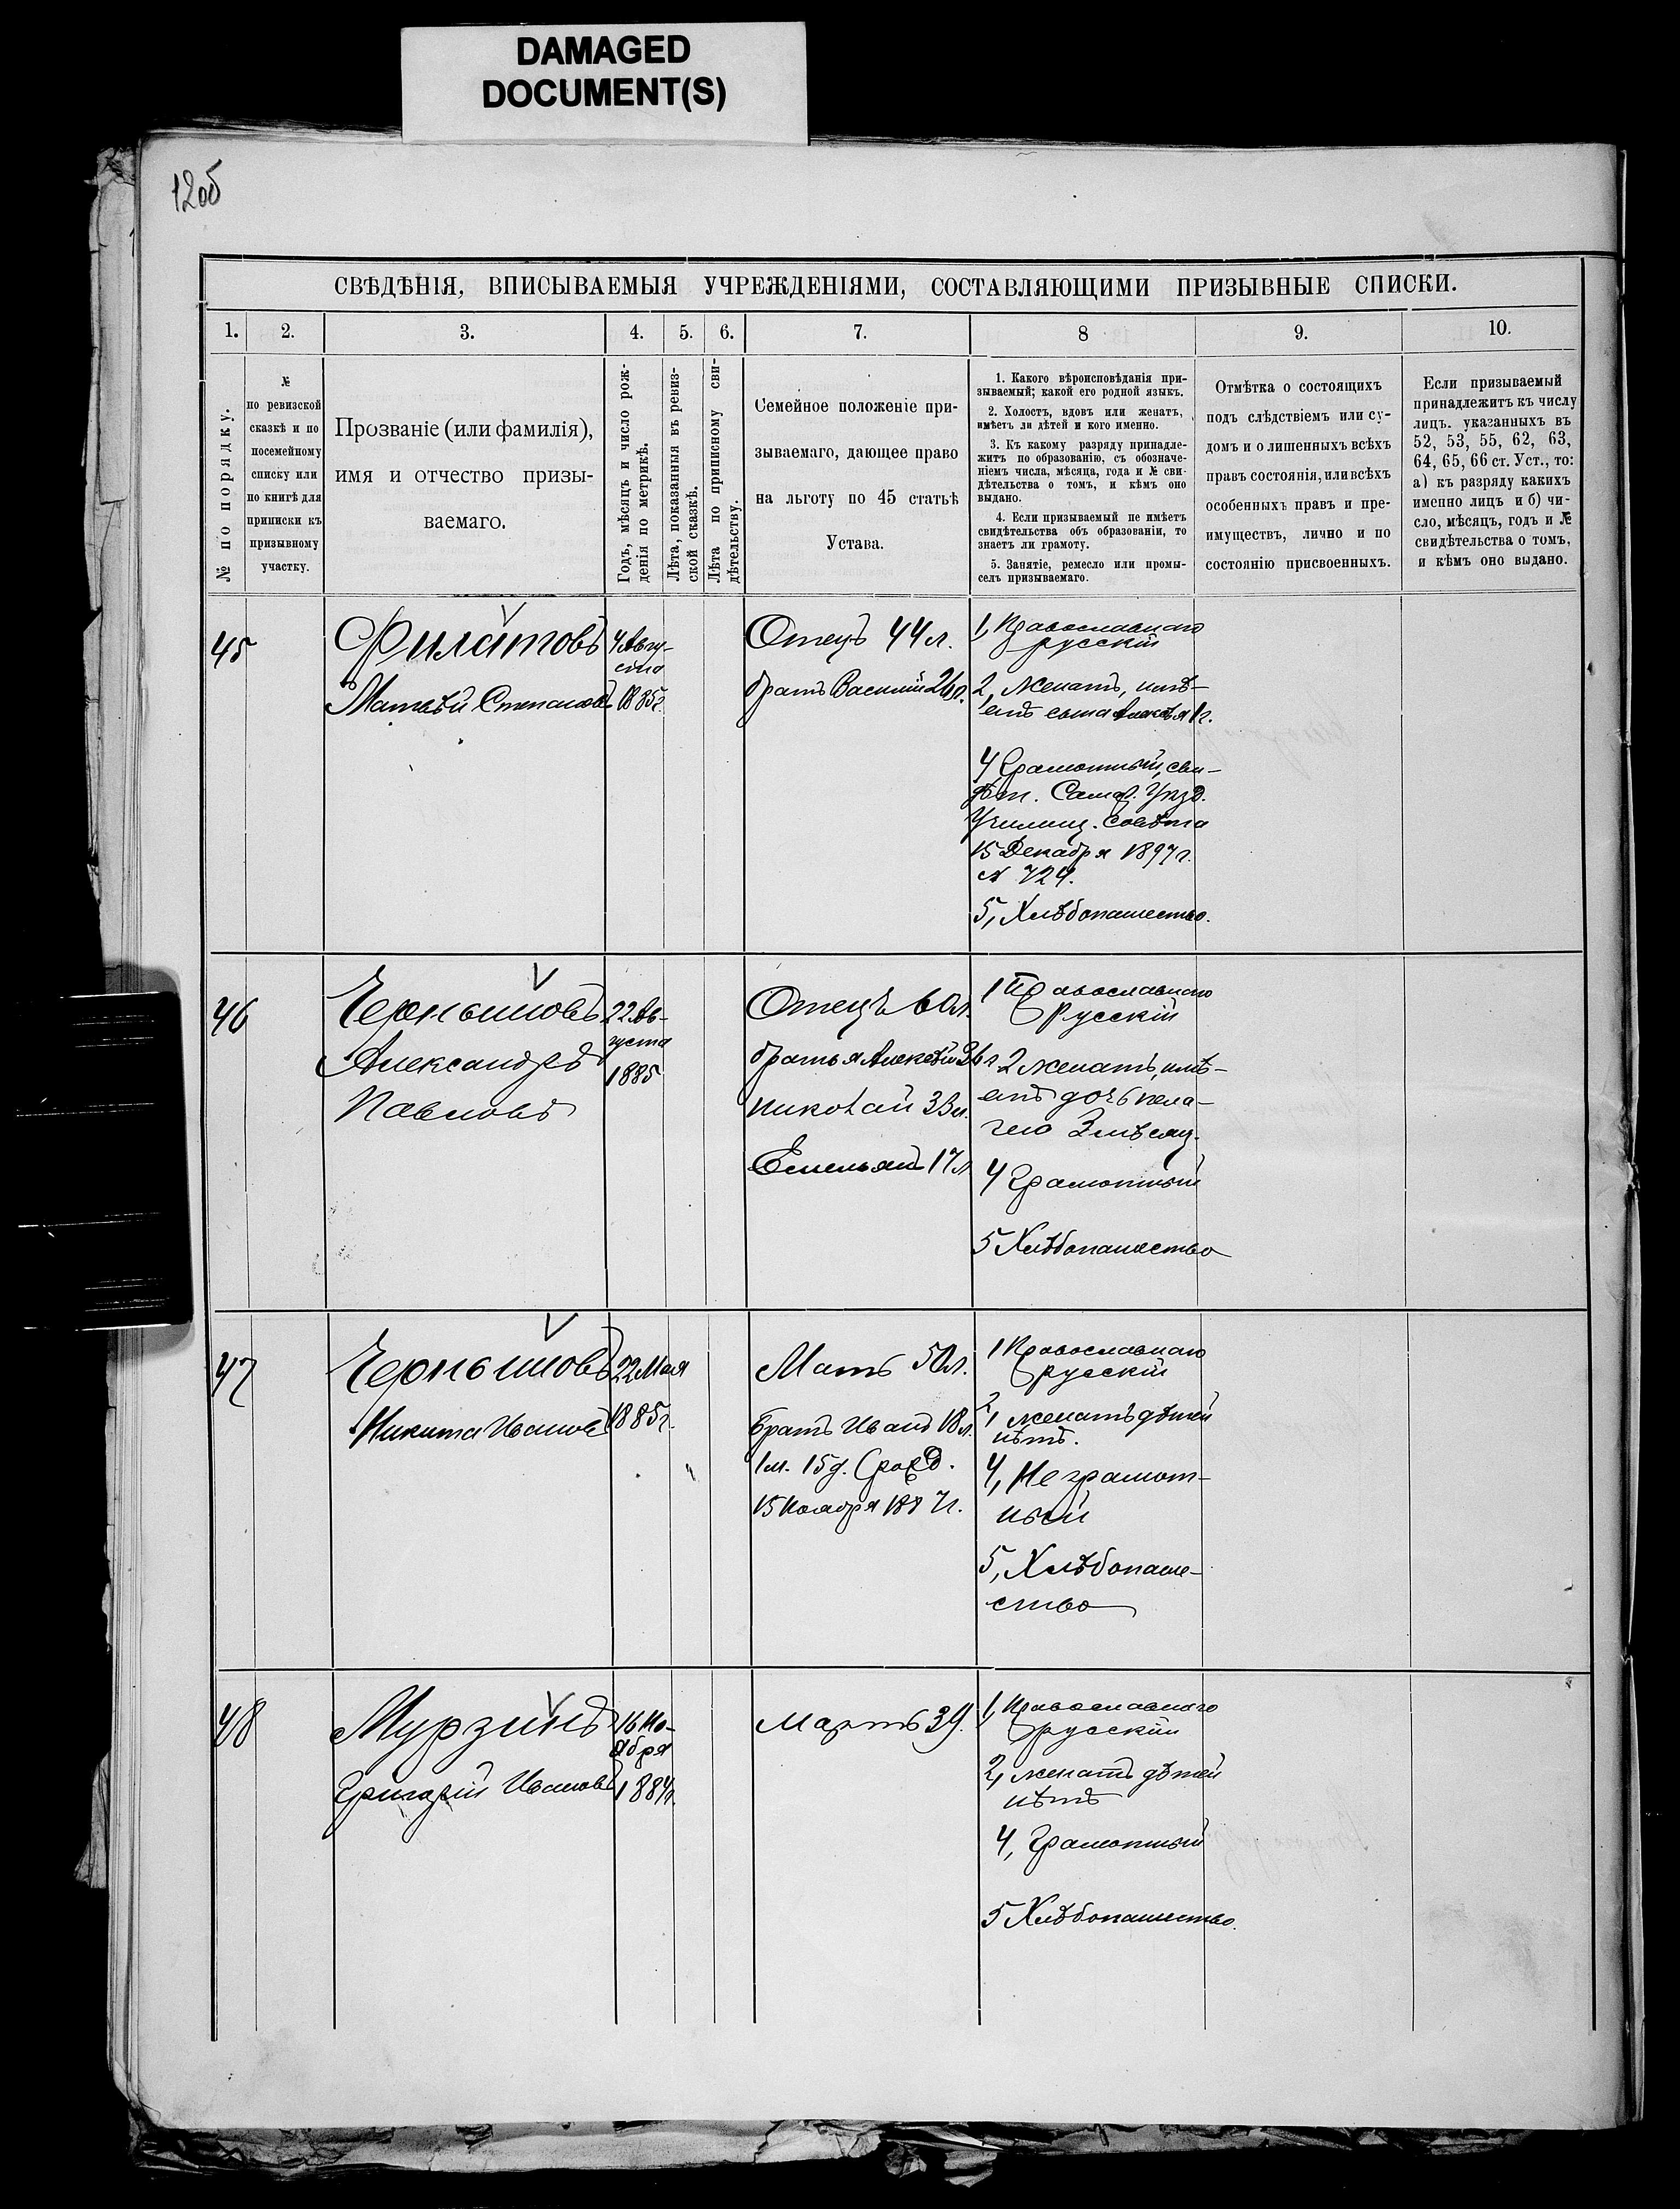 DAMAGED
DOCUMENT(S)
12об
СВѢДѢНІЯ, ВПИСЫВАЕМЫЯ УЧРЕЖДЕНІЯМИ, СОСТАВЛЯЮЩИМИ ПРИЗЫВНЫЕ СПИСКИ.
1. 2. 3. 4. 5. 6. 7. 8 9. 10.
№ по порядку.
№
по ревизской
сказкѣ и по
посемейному
списку или
по книгѣ для
приписки къ
призывному
участку.
Прозваніе (или фамилія),
имя и отчество призы-
ваемаго.
Годъ, мѣсяцъ и число рож-
денія по метрикѣ.
Лѣта, показанныя въ ревиз-
ской сказкѣ.
Лѣта по приписному сви-
дѣтельству.
Семейное положеніе при-
зываемаго, дающее право
на льготу по 45 статьѣ
Устава.
1. Какого вѣроисповѣданія при-
зываемый; какой его родной языкъ.
2. Холостъ, вдовъ или женатъ,
имѣетъ ли дѣтей и кого именно.
3. Къ какому разряду принадле-
житъ по образованію, съ обозначе-
ніемъ числа, мѣсяца, года и № сви-
дѣтельства о томъ, и кѣмъ оно
выдано.
4. Если призываемый не имѣетъ
свидѣтельства объ образованіи, то
знаетъ ли грамоту.
5. Занятіе, ремесло или промы-
селъ призываемаго.
Отмѣтка о состоящихъ
подъ слѣдствіемъ или су-
домъ и о лишенныхъ всѣхъ
правъ состоянія, или всѣхъ
особенныхъ правъ и пре-
имуществъ, лично и по
состоянію присвоенныхъ.
Если призываемый
принадлежитъ къ числу
лицъ. указанныхъ въ
52, 53, 55, 62, 63,
64, 65, 66 ст. Уст., то:
а) къ разряду какихъ
именно лицъ и б) чи-
сло, мѣсяцъ, годъ и №
свидѣтельства о томъ,
и кѣмъ оно выдано.
45
Филатовъ
Матвѣй Степановъ
4 Авгу-
ста
1885г.
Отецъ 44 л.
братъ Василій
1, Православнаго
русскій
2, Женатъ, имѣ-
етъ сына Алексѣя 1 г.
4 Грамотный, сви-
дѣт. Самар. Уѣзд.
Училищ. Совѣта
15 Декабря 1897 г.
№ 724.
5, Хлѣбопашество.
46
Чернышовъ
Александръ
Павловъ
22 Ав-
густа
1885
Отецъ 60 л.
братья Алексѣй 36 л
Николай 33 л.
Емельянъ 17 л
1 Православнаго
Русскій
2 женатъ, имѣ-
етъ дочь Пела-
гею 3 мѣсяц.
4 Грамотный
5 Хлѣбопашество
47
Чернышовъ
Никита Ивановъ
22 Мая
1885г.
Мать 50 л.
Братъ Иванъ 18 л.
1 м. 15 д. (рожд.
15 Ноября 1887 г.
1 Православнаго
русскій
2, женатъ дѣтей
нѣтъ.
4, Не грамот-
ный
5, Хлѣбопаше-
ство
48
Мурзинъ
Григорій Ивановъ
16 Но-
ября
1884г.
39.
1, Православнаго
русскій
2, женатъ дѣтей
нѣтъ
4, Грамотный
5 Хлѣбопашество.